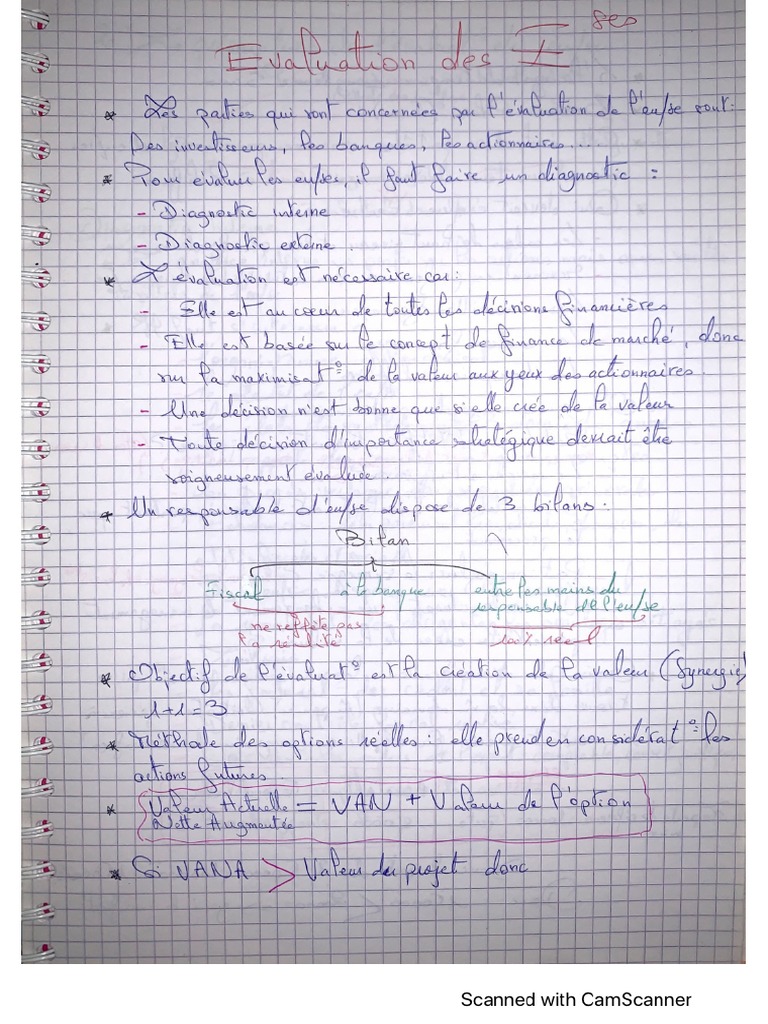 Evaluation des Eses
* Les parties qui sont concernées par l'évaluation de l'eu/se sont:
Des investisseurs, les banques, les actionnaires....
* Pour évaluer les eu/ses, il faut faire un diagnostic :
- Diagnostic interne
- Diagnostic externe.
* L'évaluation est nécessaire car:
- Elle est au cœur de toutes les décisions financières
- Elle est basée sur le concept de finance de marché, donc
sur la maximisat° de la valeur aux yeux des actionnaires.
- Une décision n'est bonne que si elle crée de la valeur
- Toute décision d'importance stratégique devrait être
soigneusement évaluée.
* Un responsable d'eu/se dispose de 3 bilans.
Bilan
Fiscal à la banque entre les mains du
responsable de l'eu/se
ne reflète pas 100% réel
la réalité
* Objectif de l'évaluat° est la création de la valeur (Synergie)
1+1=3
* Méthode des options réelles : elle prend en considérat° les
actions futures.
* Valeur Actuelle = VAN + Valeur de l'option
Nette Augmentée
* Si VANA > Valeur du projet donc
Scanned with CamScanner